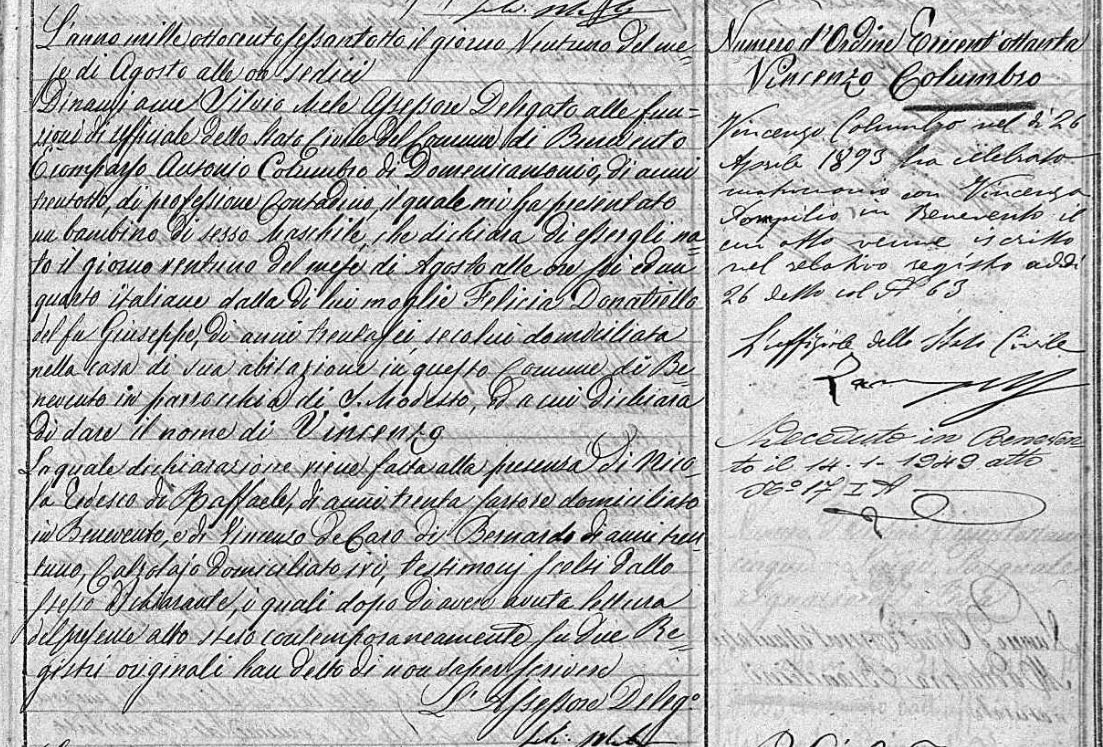 L'anno mille ottocento sessantotto il giorno Ventuno del me=
se di Agosto alle ore sedici
Dinanzi a me Silvio Mele Assessore Delegato alle fun=
zioni di Uffiziale dello Stato Civile del Comune di Benevento
È comparso Antonio Columbro di Domenicantonio, di anni
trentotto, di professione Contadino, il quale mi ha presentato
un bambino di sesso Maschile, che dichiara di essergli na=
to il giorno ventuno del mese di Agosto alle ore sei ed un
quarto italiane dalla di lui moglie Felicia Donatiello
del fu Giuseppe, di anni trentasei, seco lui domiciliata
nella casa di sua abitazione in questo Comune di Be=
nevento in parrocchia di S. Modesto, ed a cui dichiara
di dare il nome di Vincenzo
La quale dichiarazione viene fatta alla presenza di Nico
la Tedesco di Raffaele, di anni trenta sartore domiciliato
in Benevento, e di Vincenzo de Caro di Bernardo di anni tren
tuno, Calzolajo domiciliato ivi, testimonj scelti dallo
stesso dichiarante, i quali dopo di avere avuta lettura
del presente atto steso contemporaneamente su due Re=
gistri originali han detto di non saper scrivere
L'Assessore Deleg.o
Numero d'Ordine Trecent'ottanta
Vincenzo Columbro
Vincenzo Columbro nel dì 26
Aprile 1893 ha celebrato
matrimonio con Vincenza
Pompilio in Benevento il
cui atto venne iscritto
nel relativo registro addì
26 detto col N° 63
L'uffiziale dello Stato Civile
Deceduto in Beneven
to il 14-1-1949 atto
N° 17 I A